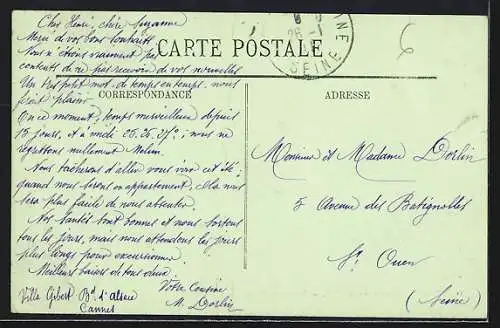 Cher Henri, chère Suzanne
Merci de vos bons souhaits
Nous n'étions vraiment pas
contents de ne pas recevoir de vos nouvelles
Un tout petit mot de temps en temps, nous
ferait plaisir.
En ce moment, temps merveilleux depuis
15 jours, et à midi 20. 25. 27°; nous ne
regrettons nullement Melun.
Nous tâcherons d'aller vous voir cet été;
quand nous serons en appartement. Cela nous
sera plus facile de nous absenter.
Nos santés sont bonnes et nous sortons
tous les jours, mais nous attendons les jours
plus longs pour excursionner.
Meilleurs baisers de tous deux.
Votre Cousine
M. Dorlin
Villa Gibert Bd d'Alsace
Cannes
CARTE POSTALE
CORRESPONDANCE
ADRESSE
SEINE
6
Monsieur et Madame Dorlin
5 Avenue des Batignolles
St Ouen
(Seine)